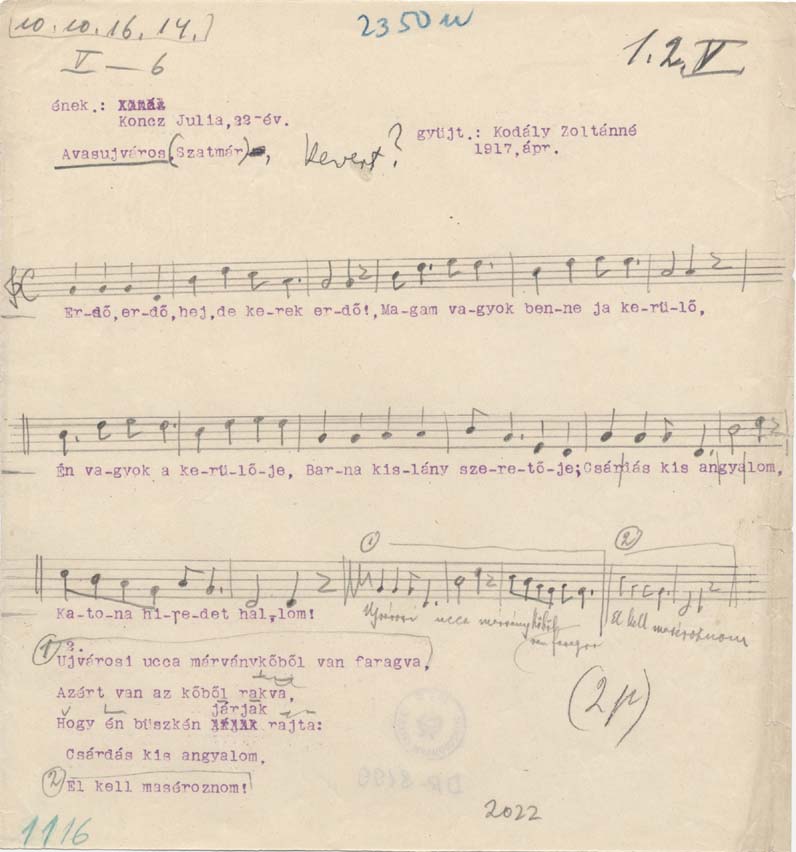 [10.10.16.14.]
2350 u
V — 6
1.2.V
ének.:
Koncz Julia,22-év.
Avasujváros (Szatmár), Kevert?
gyüjt.: Kodály Zoltánné
1917,ápr.
Er-dő,er-dő,hej,de ke-rek er-dő!,Ma-gam va-gyok ben-ne ja ke-rü-lő,
Én va-gyok a ke-rü-lő-je, Bar-na kis-lány sze-re-tő-je;Csárdás kis angyalom,
① ②
Ka-to-na hi-re-det hal,lom!
Ujvárosi ucca márványkőből
van faragva
El kell masiroznom
① 2.
Ujvárosi ucca márványkőből van faragva,
Azért van az kőből rakva,
járják
Hogy én büszkén rajta:
Csárdás kis angyalom,
② El kell maséroznom!
(2p)
1116
2022